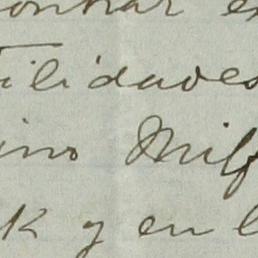 onrar e
ilidades
ino Milf
k y en l